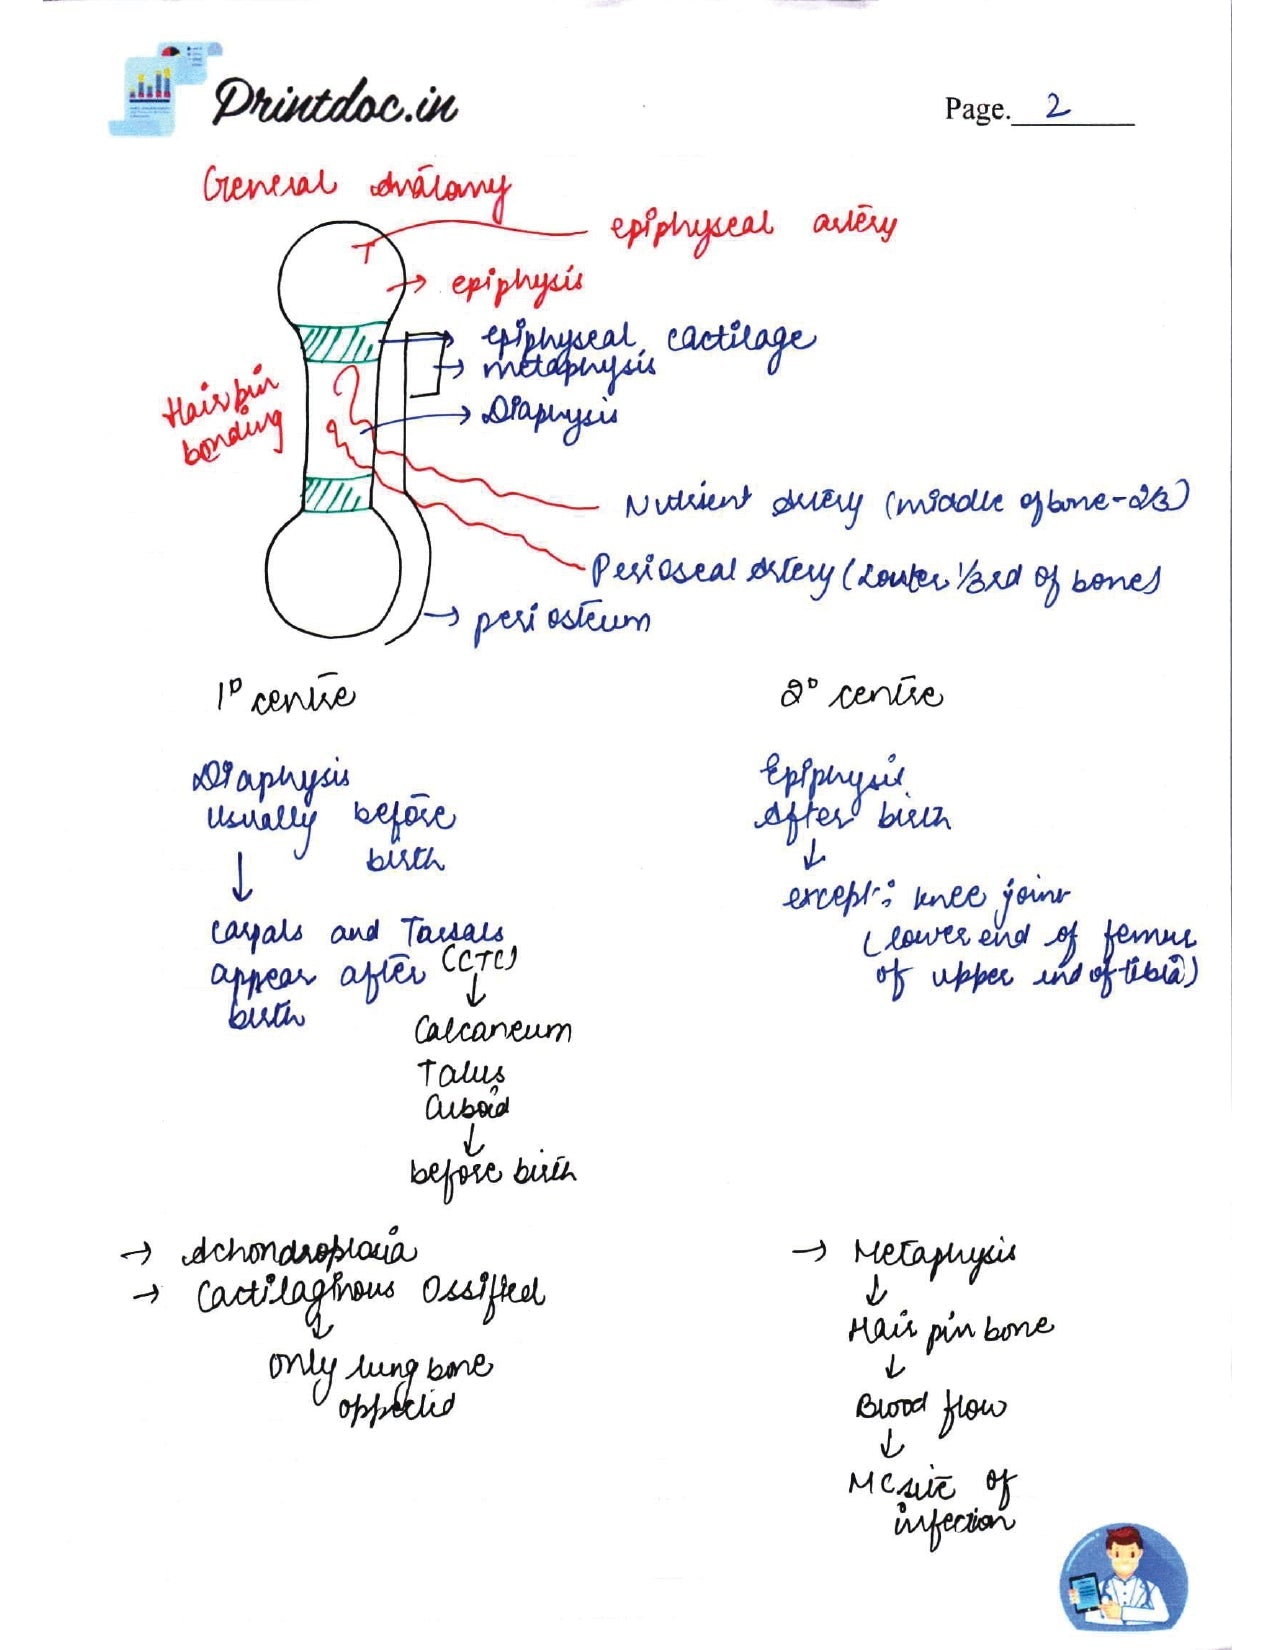 Printdoc.in
Page. 2
General Anatomy
epiphyseal artery
epiphysis
epiphyseal cactilage
metaphysis
Diaphysis
Hairpin
bonding
Nutrient Artery (middle of bone - 2/3)
Perioseal Artery (Louter 1/3rd of bone)
periosteum
1° centre
2° centre
Diaphysis
Usually before
birth
Epiphysis
After birth
carpals and Tarsals
appear after (CTC)
birth
except:- knee joint
(lower end of femur
of upper end of tibia)
Calcaneum
Talus
Cuboid
before birth
→ Achondroplasia
→ Cactilaginous Ossified
only lung bone
→ Metaphysis
Hair pin bone
Blood flow
MC site of
infection